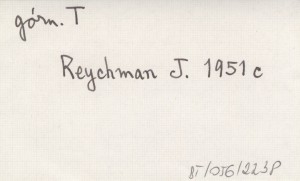 górn. T
Reychman J. 1951 c
8T/056/223P